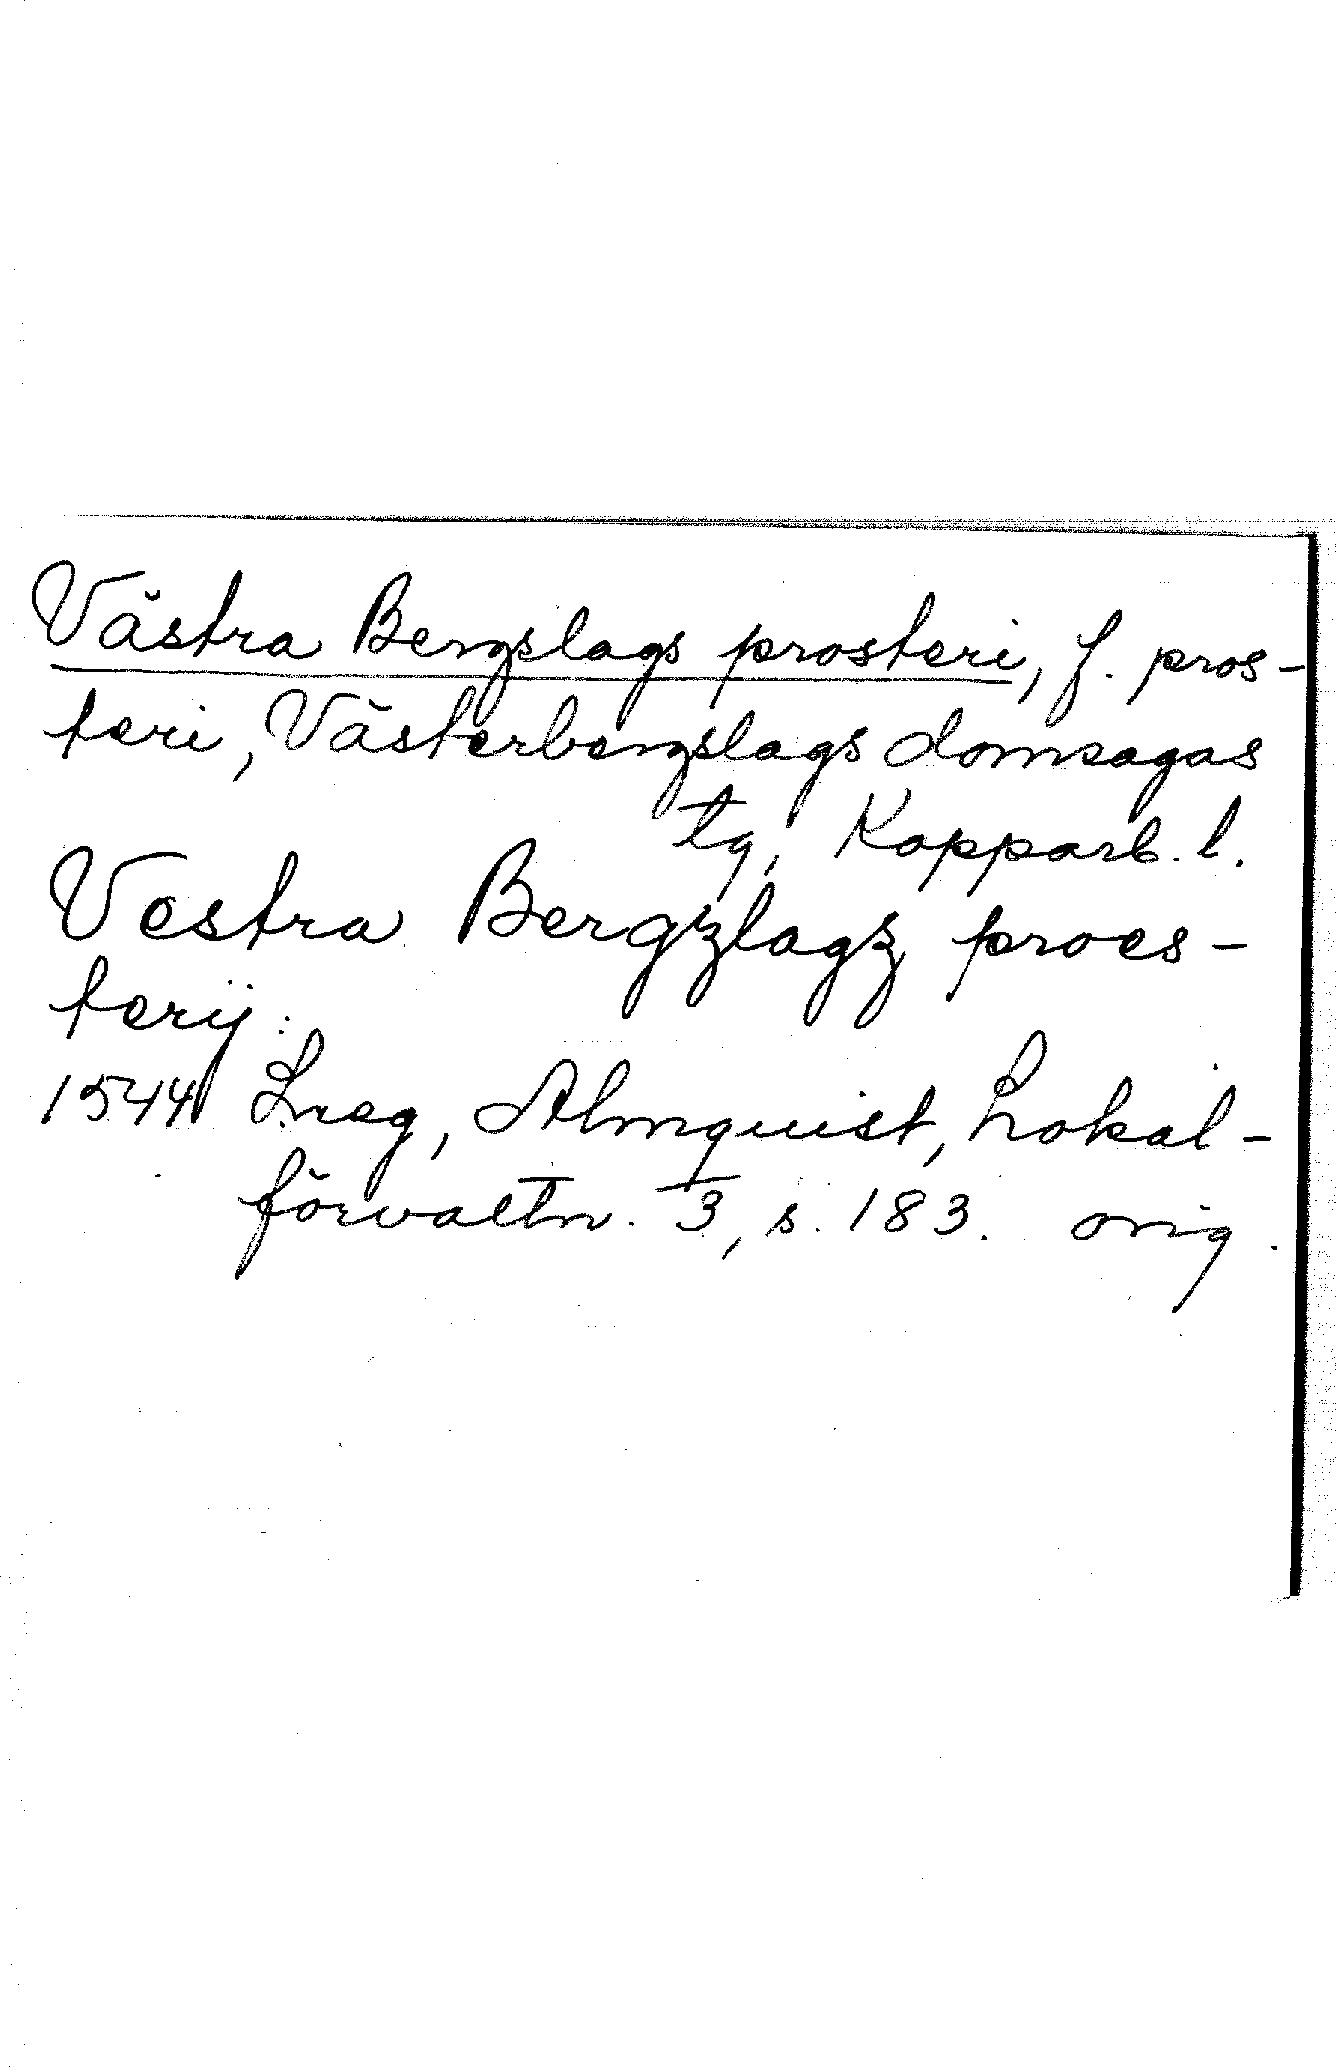 Västra Bergslags prosteri, f. pros-
teri, Västerbergslags domsagas
tg, Kopparb. l.
Vestra Bergzlagz proes-
terij:
1544 Lreg, Almquist, Lokal-
förvaltn. 3, s. 183. orig.